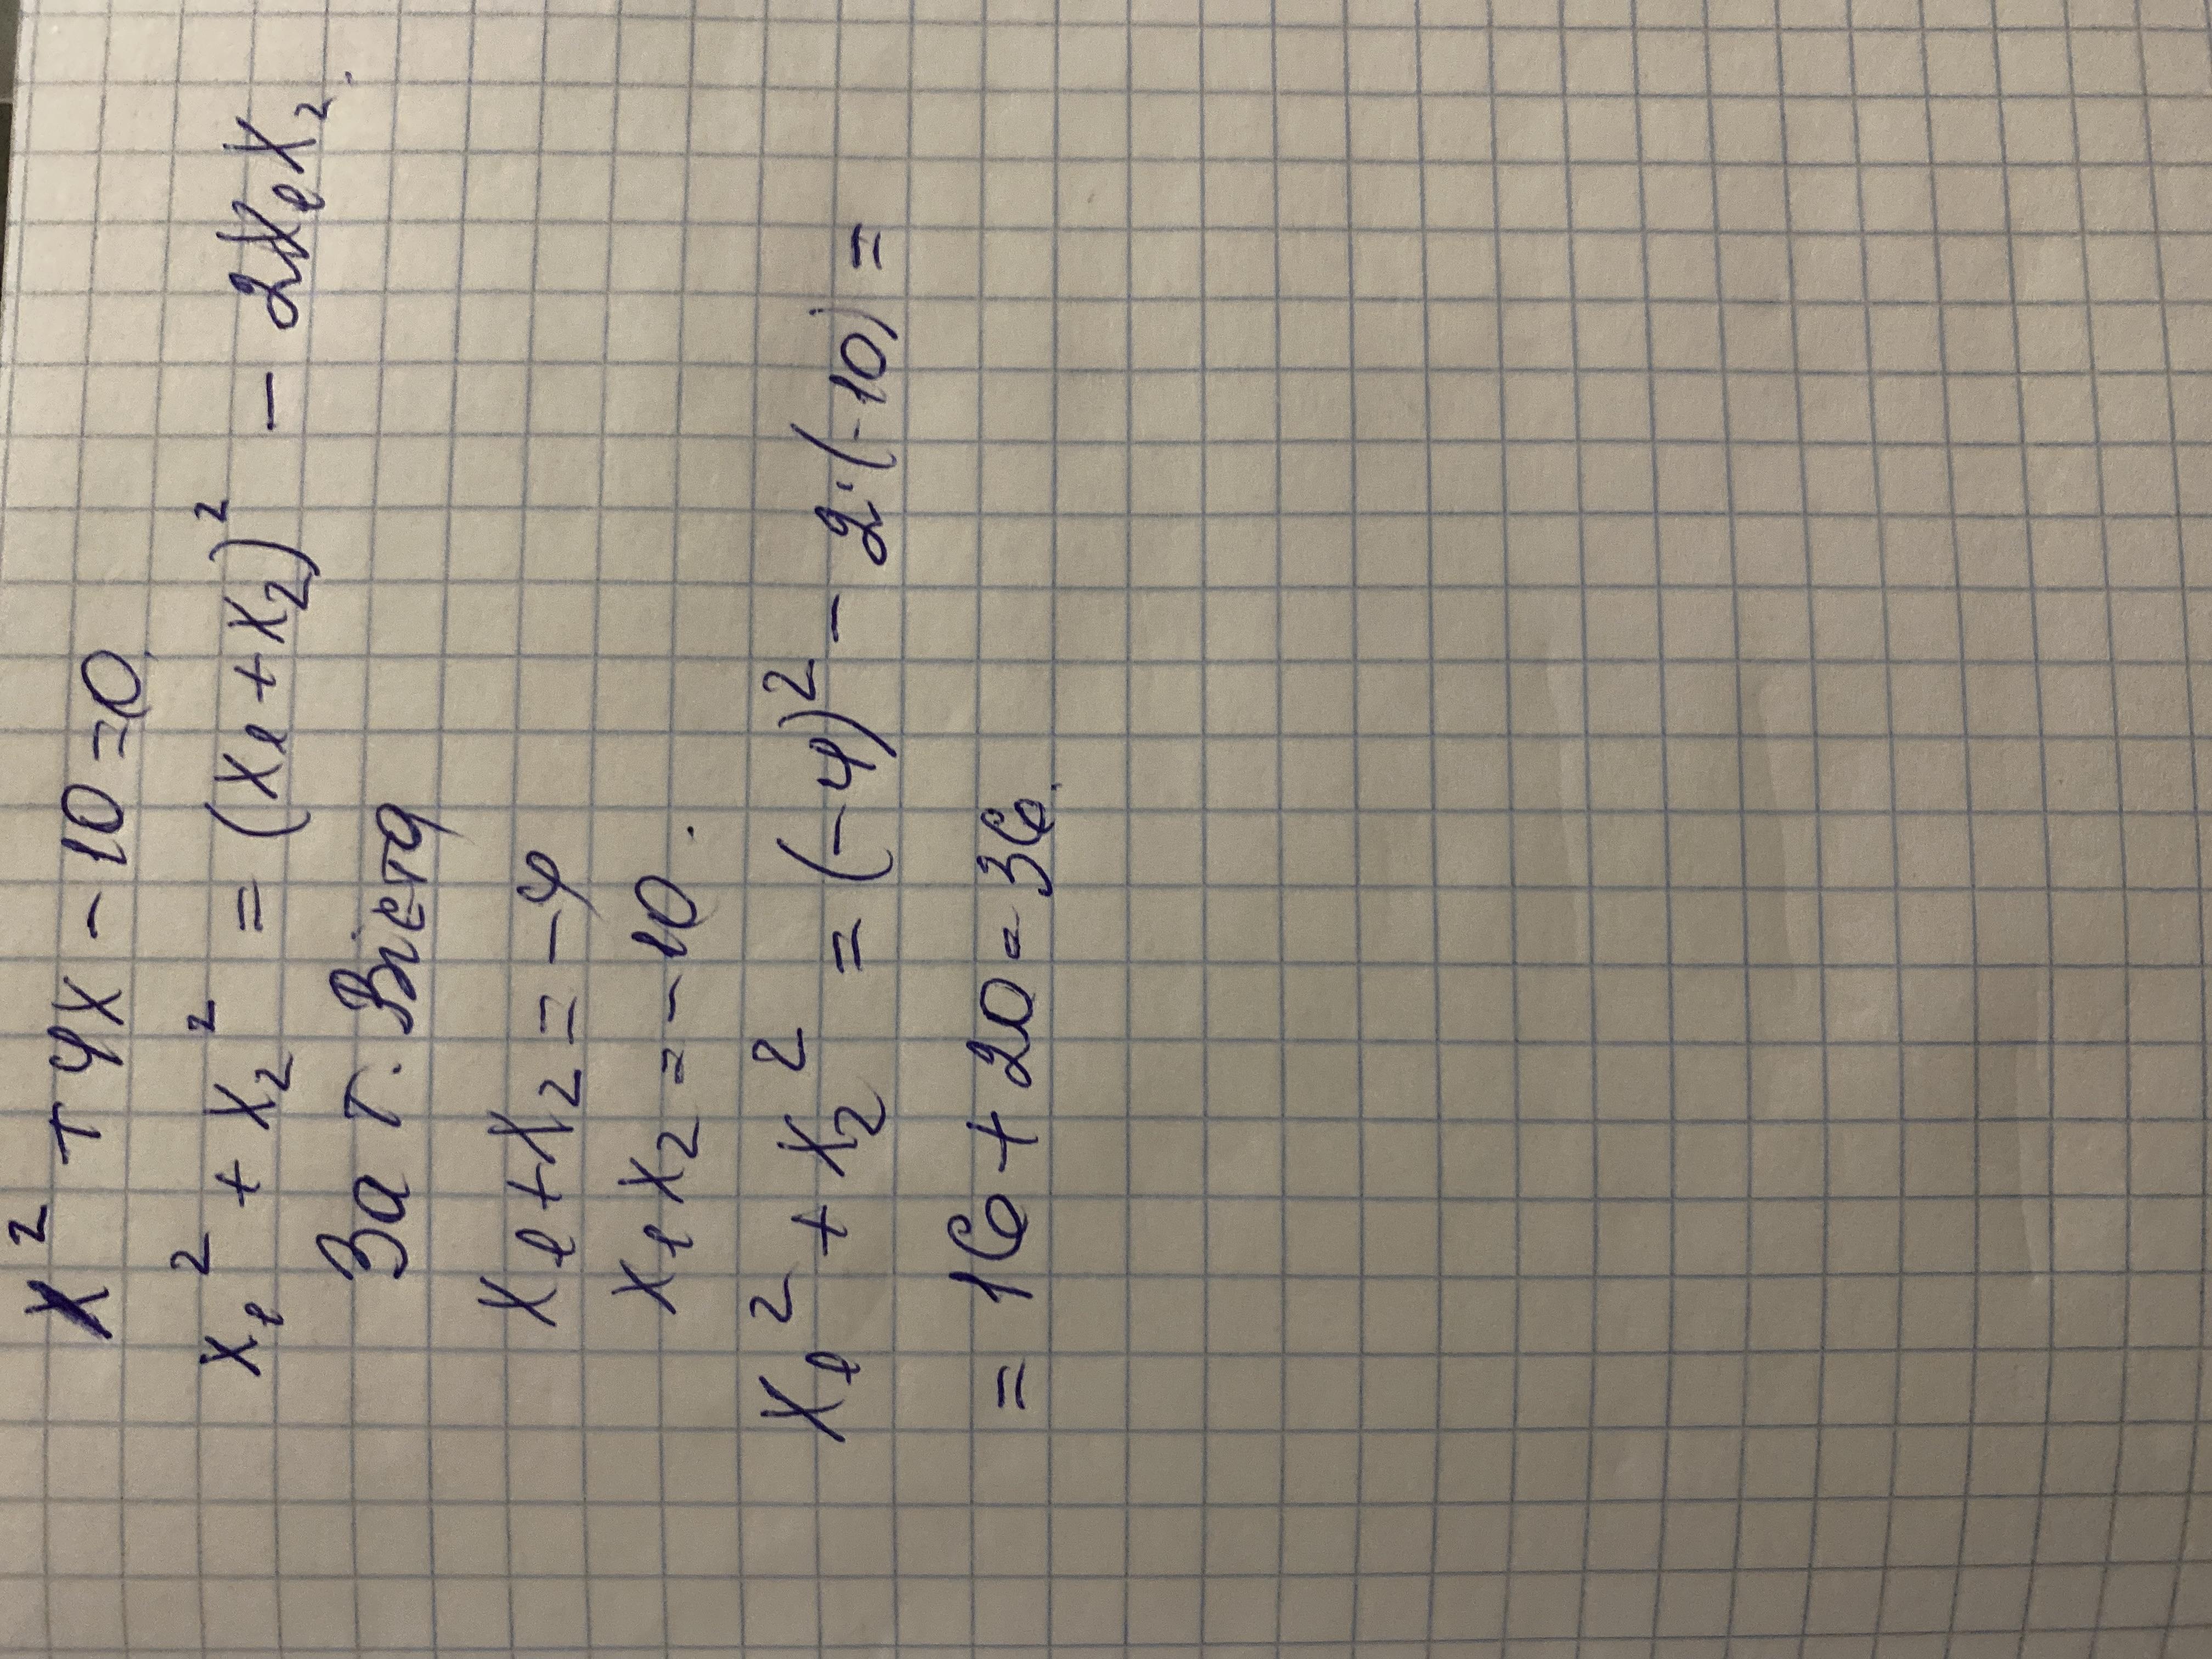 x² + 4x - 10 = 0.
x₁² + x₂² = (x₁ + x₂)² - 2x₁x₂.
За т. Вієта
x₁ + x₂ = -4
x₁x₂ = -10.
x₁² + x₂² = (-4)² - 2·(-10) =
= 16 + 20 = 36.